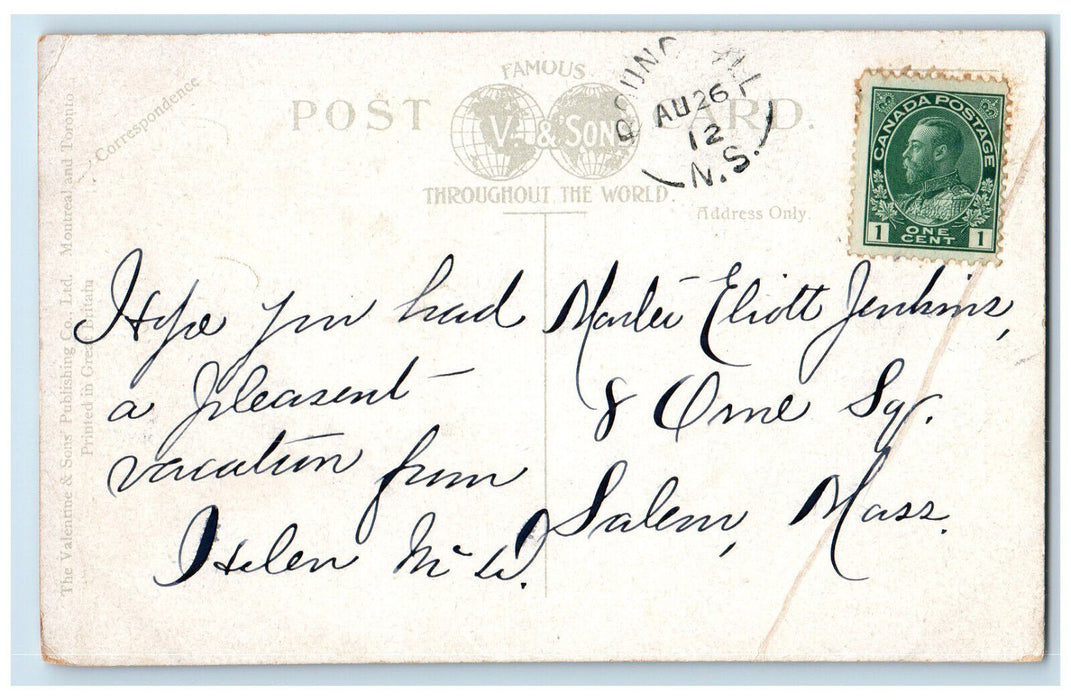 FAMOUS
POST CARD.
V. & SONS
THROUGHOUT THE WORLD.
Correspondence
Address Only.
ROUND HILL
AU 26
12
N.S.
CANADA POSTAGE
1 ONE CENT 1
The Valentine & Sons' Publishing Co., Ltd. Montreal and Toronto
Printed in Great Britain
Hope you had
a pleasent
vacation from
Helen Mc W.
Master Eliott Jenkins,
8 Orne Sq.
Salem, Mass.